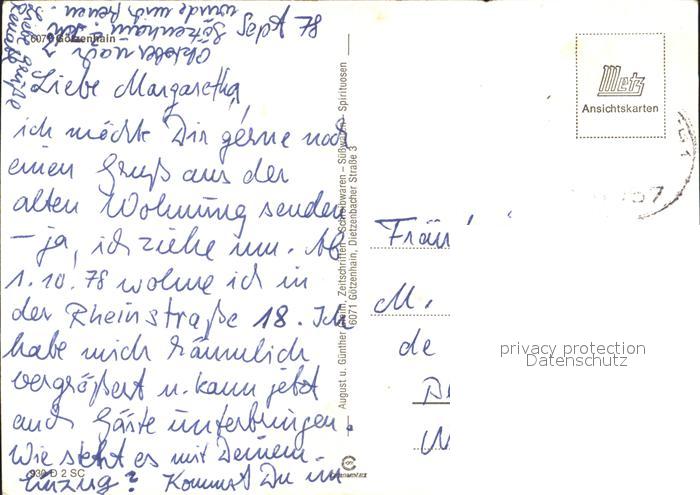 Sept 78
6071 Götzenhain
Liebe Margaretha,
ich möchte Dir gerne noch
einen Gruß aus der
alten Wohnung senden
– ja, ich ziehe um. Ab
1.10.78 wohne ich in
der Rheinstraße 18. Ich
habe mich räumlich
vergrößert u. kann jetzt
auch Gäste unterbringen.
Wie steht es mit Deinem
Umzug? Kommst Du im
Oktober nach
Götzenhain? Ich
würde mich freuen.
Liebe Grüße
930 D 2 SC
August u. Günther Heim, Zeitschriften – Schreibwaren – Süßwaren – Spirituosen
6071 Götzenhain, Dietzenbacher Straße 3
Metz
Ansichtskarten
Fräu
M.
de
privacy protection
Datenschutz